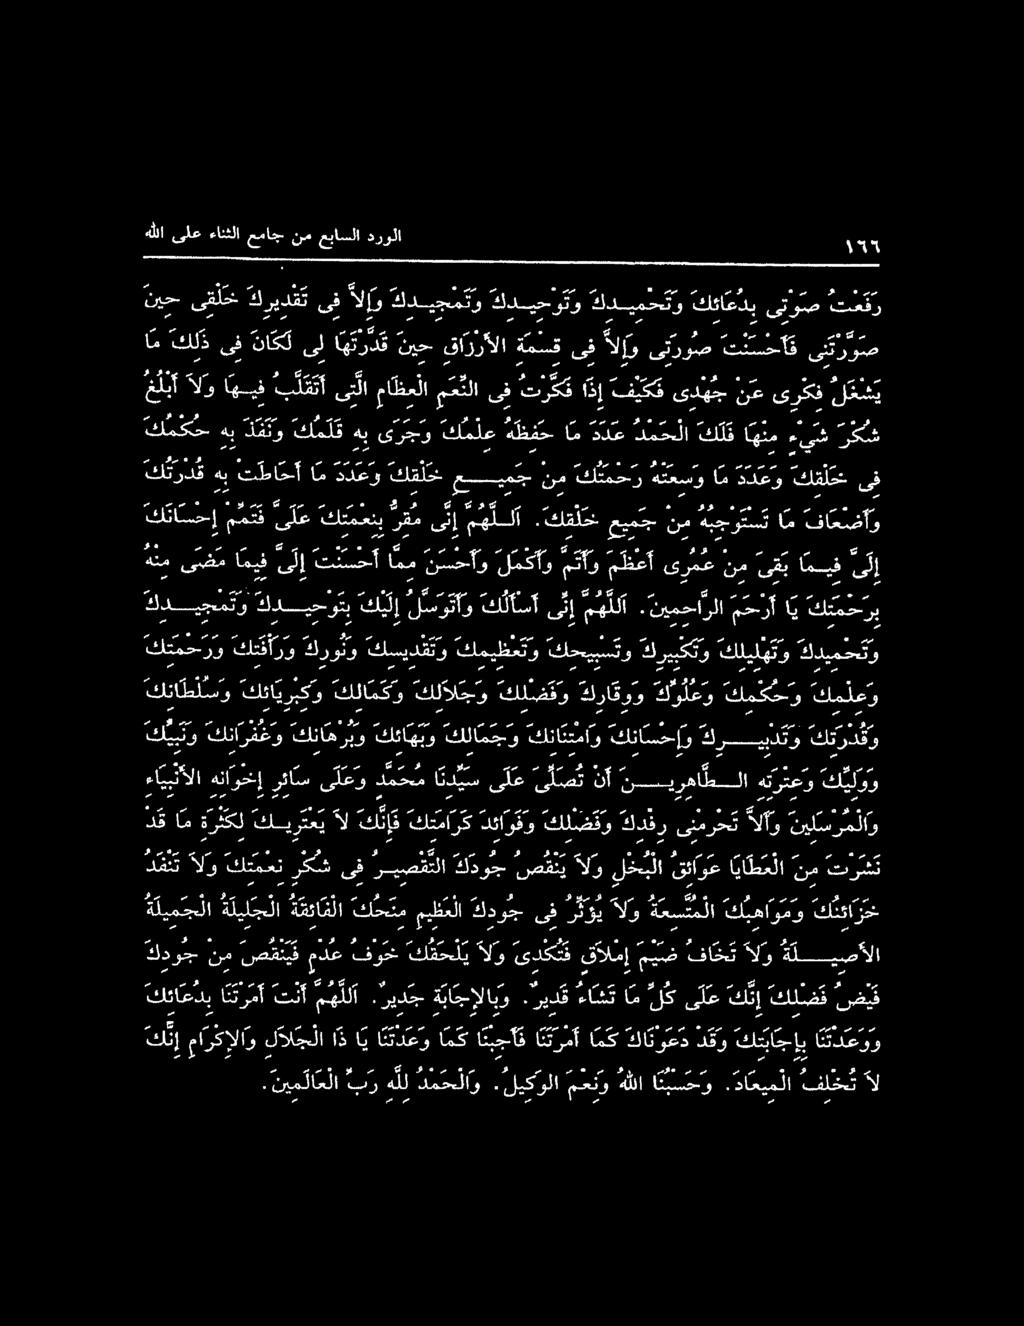 ١٦٦
الورد السابع من جامع الثناء على الله
رَفَعْتُ صَوْتِى بِدُعَائِكَ وَتَحْمِيـدِكَ وَتَوْحِيـدِكَ وَتَمْجِيـدِكَ وَإِلاَّ فِى تَقْدِيرِكَ خَلْقِى حِينَ
صَوَّرْتَنِى فَأَحْسَنْتَ صُورَتِى وَإِلاَّ فِى قِسْمَةِ الأَرْزَاقِ حِينَ قَدَّرْتَهَا لِى لَكَانَ فِى ذَلِكَ مَا
يَشْغَلُ فِكْرِى عَنْ جُهْدِى فَكَيْفَ إِذَا فَكَّرْتُ فِى النِّعَمِ الْعِظَامِ الَّتِى أَتَقَلَّبُ فِيـهَا وَلاَ أَبْلُغُ
شُكْرَ شَىْءٍ مِنْهَا فَلَكَ الْحَمْدُ عَدَدَ مَا حَفِظَهُ عِلْمُكَ وَجَرَى بِهِ قَلَمُكَ وَنَفَذَ بِهِ حُكْمُكَ
فِى خَلْقِكَ وَعَدَدَ مَا وَسِعَتْهُ رَحْمَتُكَ مِنْ جَمِيـــعِ خَلْقِكَ وَعَدَدَ مَا أَحَاطَتْ بِهِ قُدْرَتُكَ
وَأَضْعَافَ مَا تَسْتَوْجِبُهُ مِنْ جَمِيعِ خَلْقِكَ. اَلـلَّهُمَّ إِنِّى مُقِرٌّ بِنِعْمَتِكَ عَلَىَّ فَتَمِّمْ إِحْسَانَكَ
إِلَىَّ فِيـمَا بَقِىَ مِنْ عُمُرِى أَعْظَمَ وَأَتَمَّ وَأَكْمَلَ وَأَحْسَنَ مِمَّا أَحْسَنْتَ إِلَىَّ فِيمَا مَضَى مِنْهُ
بِرَحْمَتِكَ يَا أَرْحَمَ الرَّاحِمِينَ. اَللَّهُمَّ إِنِّى أَسْأَلُكَ وَأَتَوَسَّلُ إِلَيْكَ بِتَوْحِيــدِكَ وَتَمْجِيــدِكَ
وَتَحْمِيدِكَ وَتَهْلِيلِكَ وَتَكْبِيرِكَ وَتَسْبِيحِكَ وَتَعْظِيمِكَ وَتَقْدِيسِكَ وَنُورِكَ وَرَأْفَتِكَ وَرَحْمَتِكَ
وَعِلْمِكَ وَحُكْمِكَ وَعُلُوِّكَ وَوَقَارِكَ وَفَضْلِكَ وَجَلاَلِكَ وَكَمَالِكَ وَكِبْرِيَائِكَ وَسُلْطَانِكَ
وَقُدْرَتِكَ وَتَدْبِيـــرِكَ وَإِحْسَانِكَ وَامْتِنَانِكَ وَجَمَالِكَ وَبَهَائِكَ وَبُرْهَانِكَ وَغُفْرَانِكَ وَنَبِيِّكَ
وَوَلِيِّكَ وَعِتْرَتِهِ الـــطَّاهِرِيــــنَ أَنْ تُصَلِّىَ عَلَى سَيِّدِنَا مُحَمَّدٍ وَعَلَى سَائِرِ إِخْوَانِهِ الأَنْبِيَاءِ
وَالْمُرْسَلِينَ وَأَلاَّ تَحْرِمَنِى رِفْدَكَ وَفَضْلَكَ وَفَوَائِدَ كَرَامَتِكَ فَإِنَّكَ لاَ يَعْتَرِيـكَ لِكَثْرَةِ مَا قَدْ
نَشَرْتَ مِنَ الْعَطَايَا عَوَائِقُ الْبُخْلِ وَلاَ يَنْقُصُ جُودَكَ التَّقْصِيـرُ فِى شُكْرِ نِعْمَتِكَ وَلاَ تَنْفَدُ
خَزَائِنُكَ وَمَوَاهِبُكَ الْمُتَّسِعَةُ وَلاَ يُؤَثِّرُ فِى جُودِكَ الْعَظِيمِ مِنَحُكَ الْفَائِقَةُ الْجَلِيلَةُ الْجَمِيلَةُ
الأَصِيــــلَةُ وَلاَ تَخَافُ ضَيْمَ إِمْلاَقٍ فَتُكْدِىَ وَلاَ يَلْحَقُكَ خَوْفُ عُدْمٍ فَيَنْقُصَ مِنْ جُودِكَ
فَيْضُ فَضْلِكَ إِنَّكَ عَلَى كُلِّ مَا تَشَاءُ قَدِيرٌ. وَبِالإِجَابَةِ جَدِيرٌ. اَللَّهُمَّ أَنْتَ أَمَرْتَنَا بِدُعَائِكَ
وَوَعَدْتَنَا بِإِجَابَتِكَ وَقَدْ دَعَوْنَاكَ كَمَا أَمَرْتَنَا فَأَجِبْنَا كَمَا وَعَدْتَنَا يَا ذَا الْجَلاَلِ وَالإِكْرَامِ إِنَّكَ
لاَ تُخْلِفُ الْمِيعَادَ. وَحَسْبُنَا اللهُ وَنِعْمَ الْوَكِيلُ. وَالْحَمْدُ لِلَّهِ رَبِّ الْعَالَمِينَ.